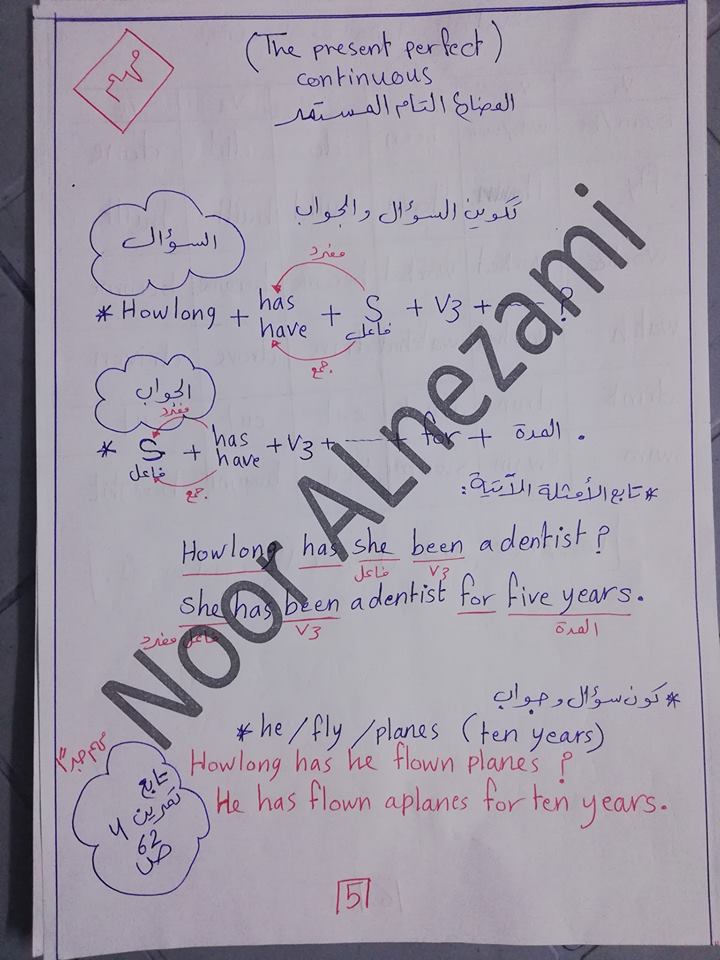 مهم
(The present perfect)
continuous
المضارع التام المستمر
تكوين السؤال والجواب
السؤال
مفرد
* Howlong + has have + S + V3 + ------ ?
فاعل
جمع
الجواب
مفرد
* S + has have + V3 + ------ + for + المدة .
فاعل
جمع
* تابع الأمثلة الآتية:
Howlong has she been a dentist ?
فاعل V3
She has been a dentist for five years.
فاعل مفرد V3 المدة
* كون سؤال وجواب
* he / fly / planes (ten years)
Howlong has he flown planes ?
He has flown aplanes for ten years.
مهم جداً
تابع
تمرين 4
62
ص
5
Noor ALnezami